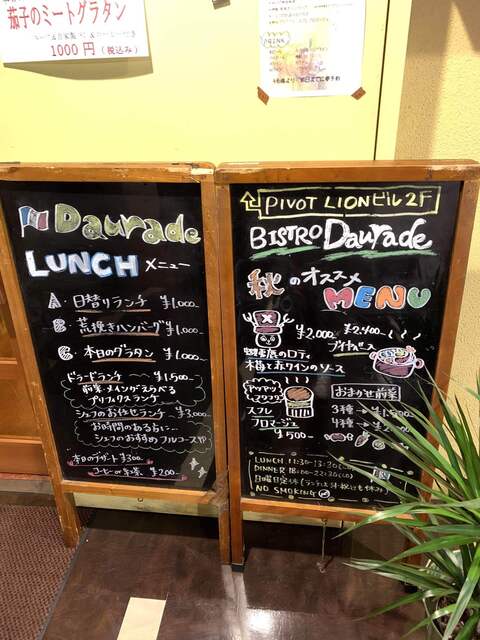 茄子のミートグラタン
1000円(税込み)
Daurade
LUNCH メニュー
A・日替りランチ ¥1,000-
B・荒挽きハンバーグ ¥1,000-
C・本日のグラタン ¥1,000-
ドラードランチ ¥1,500-
前菜・メインがえらべる
プリフィクスランチ
シェフのお任せランチ ¥3,000-
お時間のある方に…
シェフのおすすめフルコース
本日のデザート ¥300-
コーヒー or 紅茶 ¥200-
PIVOT LIONビル2F
BISTRO Daurade
秋のオススメ
MENU
¥2,000-
のロティ
木苺と赤ワインのソース
¥2,400-
ブイヤベース
アツアツ
フワフワ
スフレ
フロマージュ
¥500-
おまかせ前菜
3種→¥1,500-
4種→
LUNCH 11:30-13:30
DINNER 18:00-22:30
日曜日定休
NO SMOKING